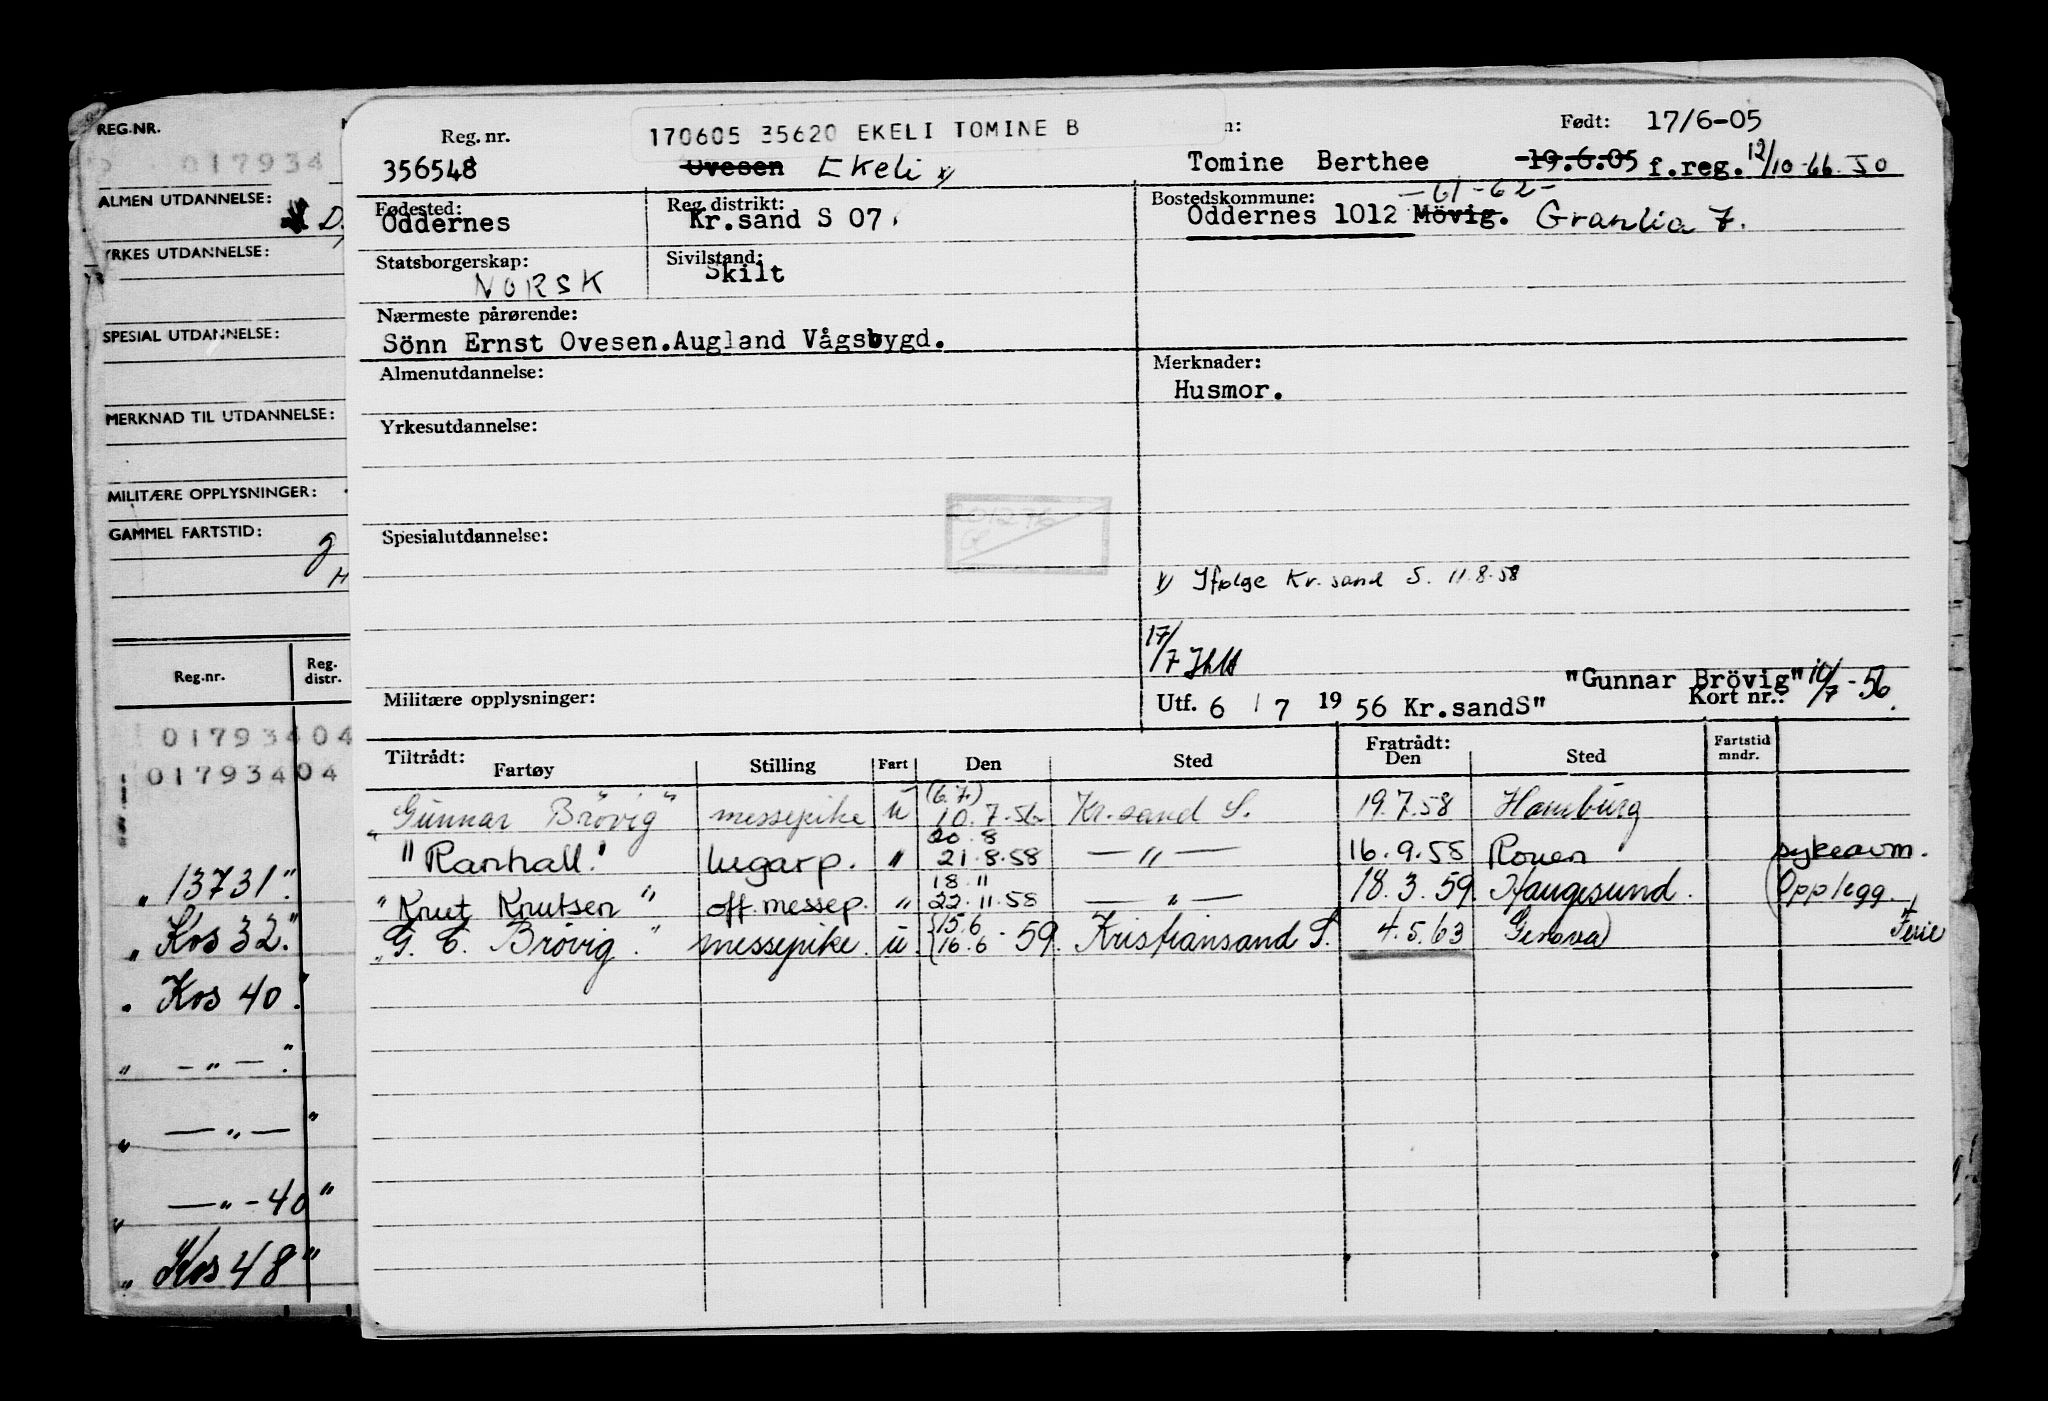 REG.NR.
017934
ALMEN UTDANNELSE:
D.
YRKES UTDANNELSE:
SPESIAL UTDANNELSE:
MERKNAD TIL UTDANNELSE:
MILITÆRE OPPLYSNINGER:
GAMMEL FARTSTID:
g
H
Reg.nr. Reg. distr.
01793404
01793404
„ 13731".
„ Kos 32."
„ Kos 40."
„ - „ - "
„ - „ - "
„ - „ - 40"
„ Kos 48"
Reg. nr. 170605 35620 EKELI TOMINE B n: Født: 17/6-05
356548 Ovesen Ekeli x) Tomine Berthee 19.6.05 f.reg. 12/10-66. JO
Fødested: Reg. distrikt: Bostedskommune: -61-62-
Oddernes Kr.sand S 07. Oddernes 1012 Mövig. Granlia 7.
Statsborgerskap: Sivilstand:
NORSK Skilt
Nærmeste pårørende:
Sönn Ernst Ovesen.Augland Vågsbygd.
Almenutdannelse: Merknader:
Husmor.
Yrkesutdannelse:
201276
Spesialutdannelse:
x) Ifølge Kr.sand S. 11.8.58
17/7
"Gunnar Brövig" 10/7-56.
Militære opplysninger: Utf. 6 / 7 19 56 Kr.sandS" Kort nr.:
Tiltrådt: Fratrådt: Fartstid
Fartøy Stilling Fart Den Sted Den Sted mndr.
„Gunnar Brövig" messepike u (6.7.) 10.7.56 Kr.sand S. 19.7.58 Hamburg
"Ranhall" lugarp. „ 20.8 21.8.58 — „ — 16.9.58 Rouen sykeavm.
"Knut Knutsen" off.messep. „ 18.11 22.11.58 — „ — 18.3.59. Haugesund. (Opplegg.
„G. C. Brövig." messepike. u {15.6 16.6 - 59. Kristiansand S. 4.5.63 Genova) Ferie